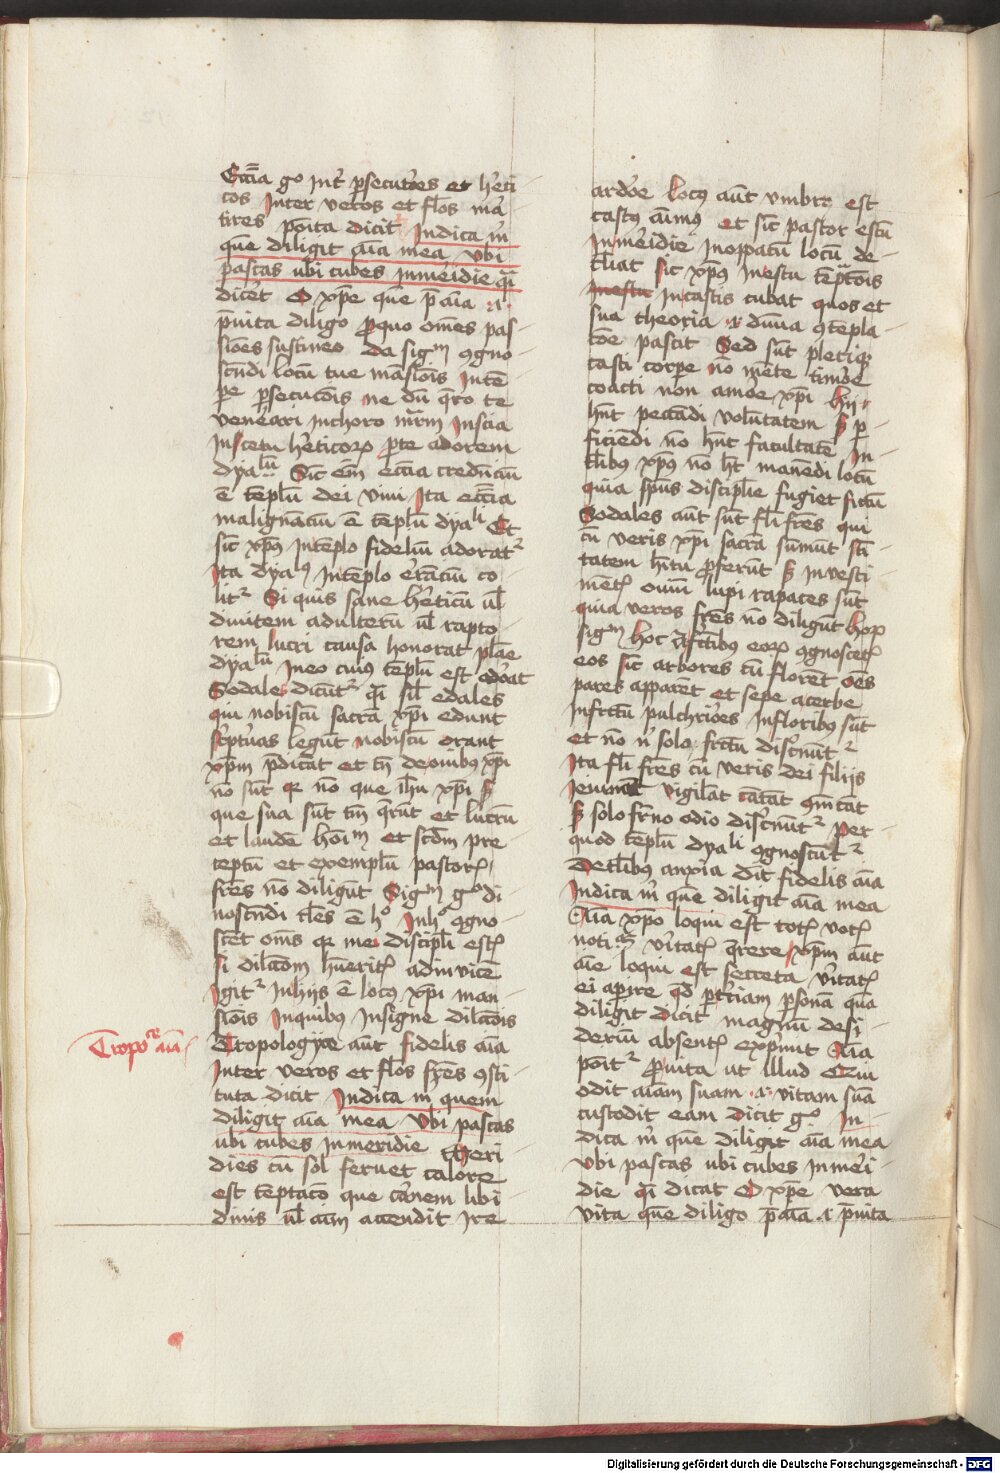 Eccīa gº int̄ ꝑsecutores et hereti
cos Inter veros et fl̄os mar
tires poīta dicit Indica m̄
quē diligit aīa mea vbi
pascas ubi cubes In meridie q̄ı
dicēt O xp̄e quē p̄ aīa .i.
p̄ vita diligo ꝓ quo om̄es pas
siōes sustineo da sigᵐ ꝯgno
scendi locū tue māsiōis In tēꝑe
ꝑsecutiōis ne dū q̄ro te
venerari in choro mr̄m Inscia
In scetu hereticoꝝ ꝑte adorem
dyaˡū Sic em̄ eccīa credenciū
ē templū dei viui Ita eccīa
malignāciū ē templū dyaˡi Et
sic xp̄us In templo fideliū adoratᷣ
Ita dyaˡꝯ In templo errāciū co
litᷣ Si quis sane hereticū ul̄
diuitem adulterū ul̄ rapto
rem lucri causa honorat plāe
dyaˡū In eo cuius templū est adorat
Sodales dicūtᷣ q̄ı sil̄ edales
qui nobiscū sacra xp̄i edunt
scripturas legūt nobiscū orant
xp̄m p̄dicāt et tn̄ de ouibꝯ xp̄i
nō sūt qꝛ nō que ih̄u xp̄i sꝫ
que sua sūt tm̄ q̄rūt et lucrū
et laudē hoīᵐ et scd̄m pre
ceptū et exemplū pastorꝭ
fr̄es nō diligūt Sigᵐ gº di
noscendi tl̄es ē hº In hº ꝯgno
scēt om̄s qꝛ mei discipl̄i estꝭ
si dilc̄om̄ habueritꝭ adinuicē
Igitᷣ In hijs ē locꝯ xp̄i man
siōis In quibꝯ Insigne dilc̄ois
Tropoᶜᵉ aīa
Tropologyce aūt fidelis aīa
Inter veros et fl̄os fr̄es ꝯsti
tuta dicit Indica m̄ quem
diligit aīa mea Vbi pascas
ubi cubes In meridie Meri
dies cū sol feruet calore
est temptaco que carnem libi
dinis ul̄ aīm accendit Ire
ardore Locꝯ aūt vmbre est
castꝯ aīmꝯ et sic pastor estū
In meridie In opacatū locū de
clinat sic xp̄us In estu tēptaōis
In castis cubat quos et
sua theoria .i. diuīa ꝯtempla
cōe pascit Sed sūt pleriqꝫ
casti corpe nō mēte timore
coacti non amore xp̄i hij
hn̄t peccādi volūtatem sꝫ ꝑ
ficiendi nō hn̄t facultatē In
tl̄ibꝯ xp̄us nō hȝ manēdi locū
quia spūs discipl̄ie fugiet fictū
Sodales aūt sūt fl̄i fr̄es qui
cū veris xp̄i sacra sūmūt sc̄i
tatem hītu p̄ferūt sꝫ In vesti
mētꝭ ouiū lupi rapaces sūt
quia veros fr̄es nō diligūt horꝫ
sigᵐ hoc A fructibꝯ eorꝫ ꝯgnoscetꝭ
eos sic arbores cū florēt oēs
pares apparēt et sepe acerbe
In fructū pulchriores In floribꝯ sūt
et nō nˢ solo fructū discernūtᷣ
Ita fl̄i fr̄es cū veris dei filijs
Ieiunāt vigilāt cātāt ꝯmeāt
sꝫ solo frn̄o odio discernūtᷣ Per
quod templū dyaˡi ꝯgnoscūtᷣ
De tl̄ibꝯ anxia dit fidelis aīa
Indica m̄ quē diligit aīa mea
Aīa xp̄o loqui est totꝭ votꝭ
noticiā vritatꝭ q̄rere xp̄m aūt
aīe loqui est secreta vritatꝭ
ei aperire qd̄ p̄ tertiam ꝑsonā quā
diligit dicit magnū desi
deriū absentꝭ exprimit Aīa
poīt ᷣ ꝓ vita ut Illud Qui
odit aīam suam .i. vitam suā
custodit eam dicit gº In
dica m̄ quē diligit aīa mea
vbi pascas ubi cubes In meri
die q̄ı dicat O xp̄e vera
vita quē diligo p̄ aīa .i. p̄ vita
Digitalisierung gefördert durch die Deutsche Forschungsgemeinschaft - DFG